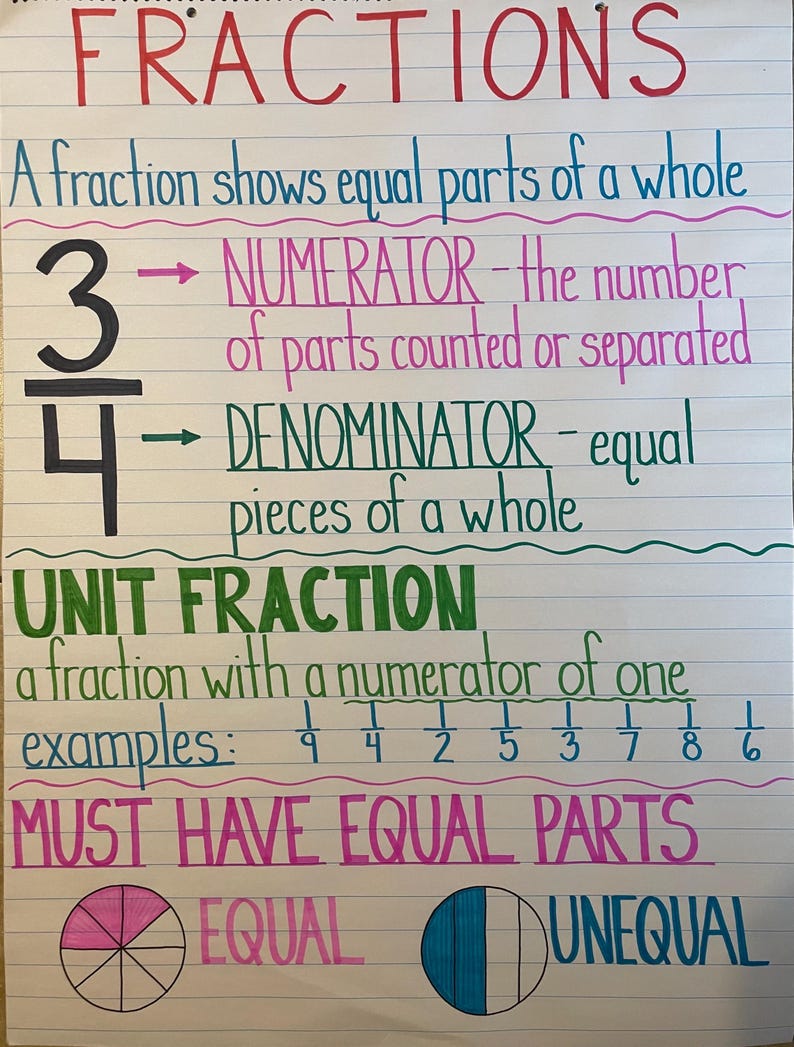 FRACTIONS
A fraction shows equal parts of a whole
3/4
NUMERATOR - the number
of parts counted or separated
DENOMINATOR - equal
pieces of a whole
UNIT FRACTION
a fraction with a numerator of one
examples: 1/9 1/4 1/2 1/5 1/3 1/7 1/8 1/6
MUST HAVE EQUAL PARTS
EQUAL UNEQUAL